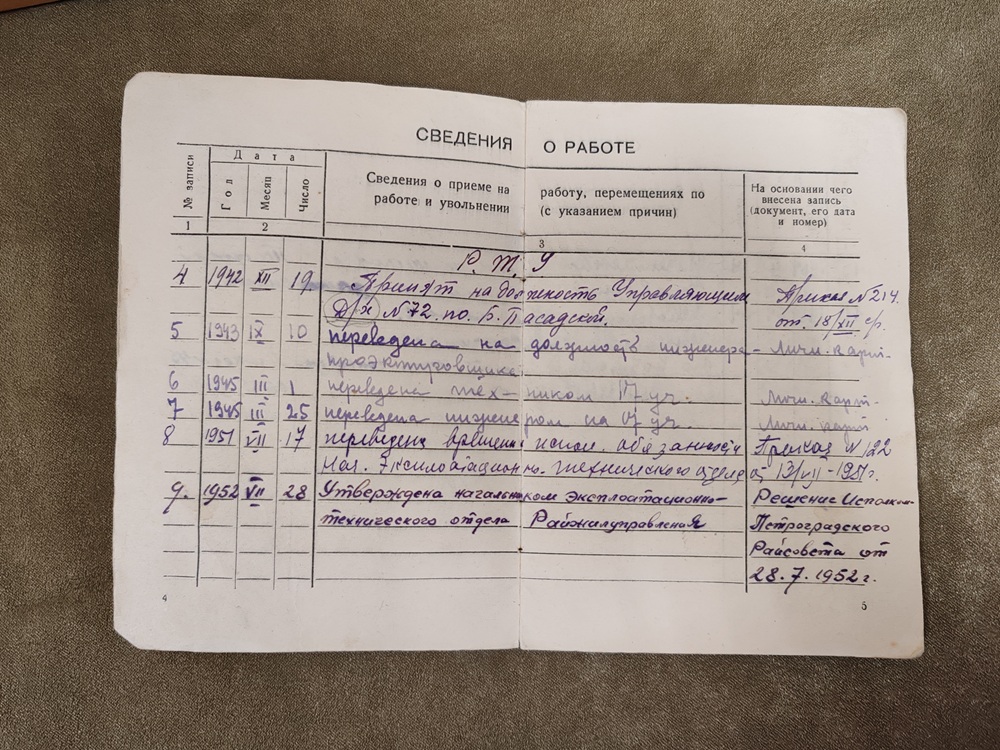 СВЕДЕНИЯ О РАБОТЕ
№ записи
Дата
Год
Месяц
Число
Сведения о приеме на работу, перемещениях по
работе и увольнении (с указанием причин)
На основании чего
внесена запись
(документ, его дата
и номер)
1 2 3 4
Р.Ж.У
4 1942 XII 19 Принят на должность Управляющим Приказ № 214.
Д/х № 72. по. Б. Пасадской. от. 18/XII
5 1943 IX 10 переведена на должность инженера- Личн. карт.
проэктировщика
6 1945 III 1 переведена тех-ником уч. Личн. карт.
7 1945 III 25 переведена инженером на уч. Личн. карт
8 1951 VII 17 переведена временно испол. обязанностей Приказ № 122
Нач. Эксплоатационно. технического отдела от 13/VII-1951 г.
9. 1952 VII 28 Утверждена начальником эксплоатационно- Решение Исполком
технического отдела Райжилуправления Петроградского
Райсовета от
28.7.1952 г.
4
5